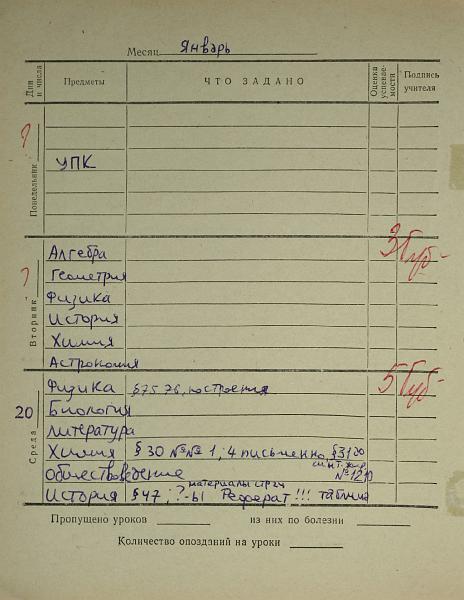 Месяц Январь
Дни и числа Предметы ЧТО ЗАДАНО Оценка успеваемости Подпись учителя
Понедельник ?
УПК
Вторник ?
Алгебра 3
Геометрия
Физика
История
Химия
Астрономия
Среда 20
Физика §75,76, построения 5
Биология
Литература
Химия § 30 №№ 1; 4 письменно, §31
Обществоведение №1210
материалы
История § 47; ?-ы Реферат!!! таблица
Пропущено уроков из них по болезни
Количество опозданий на уроки